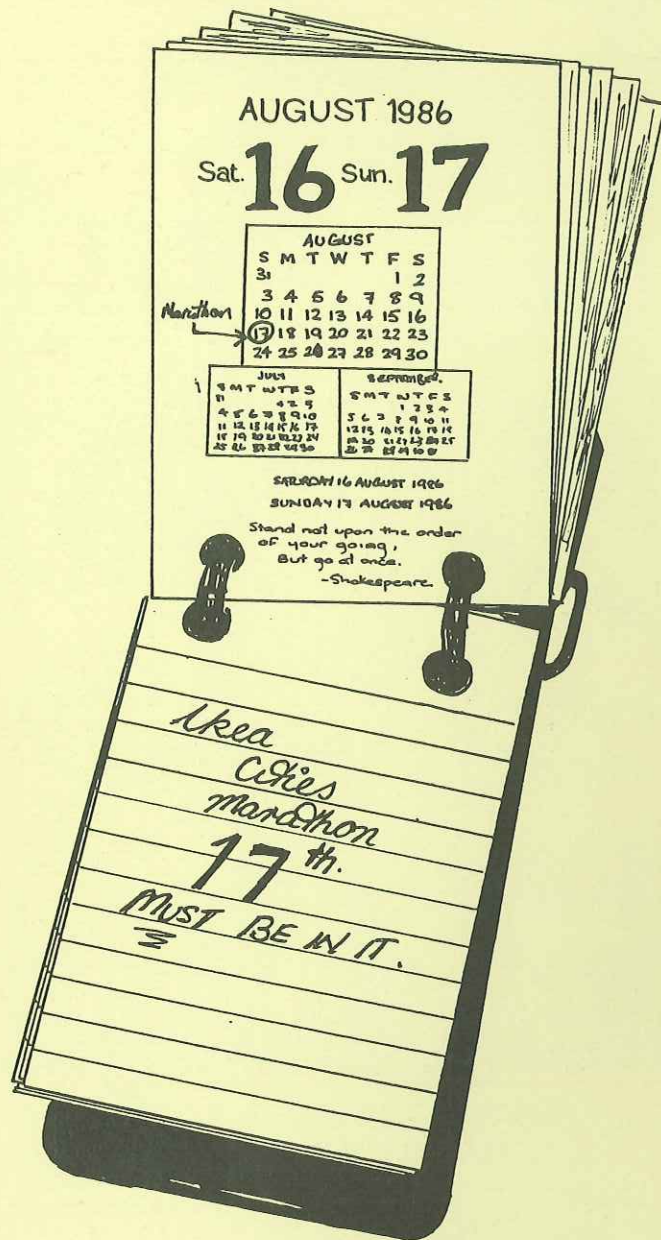 AUGUST 1986
Sat. 16 Sun. 17
AUGUST
S M T W T F S
31 1 2
3 4 5 6 7 8 9
10 11 12 13 14 15 16
Marathon
17 18 19 20 21 22 23
24 25 26 27 28 29 30
JULY
S M T W T F S
4 5 6 7 8 9 10
11 12 13 14 15 16 17
18 19 20 21 22 23 24
25 26 27 28 29 30
SEPTEMBER.
S M T W T F S
1 2 3 4
5 6 7 8 9 10 11
12 13 14 15 16 17 18
19 20 21 22 23 24 25
26 27 28 29 30
SATURDAY 16 AUGUST 1986
SUNDAY 17 AUGUST 1986
Stand not upon the order
of your going,
But go at once.
-Shakespeare.
Ikea
Cities
Marathon
17th.
MUST BE IN IT.